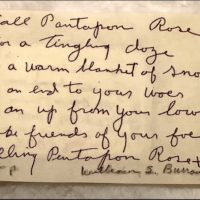 Call Pantapon Rose
or a tingling doze
a warm blanket of sno
an end to your woes
an up from your low
be friends of your foe
lling Pantapon Rose
William S. Burro